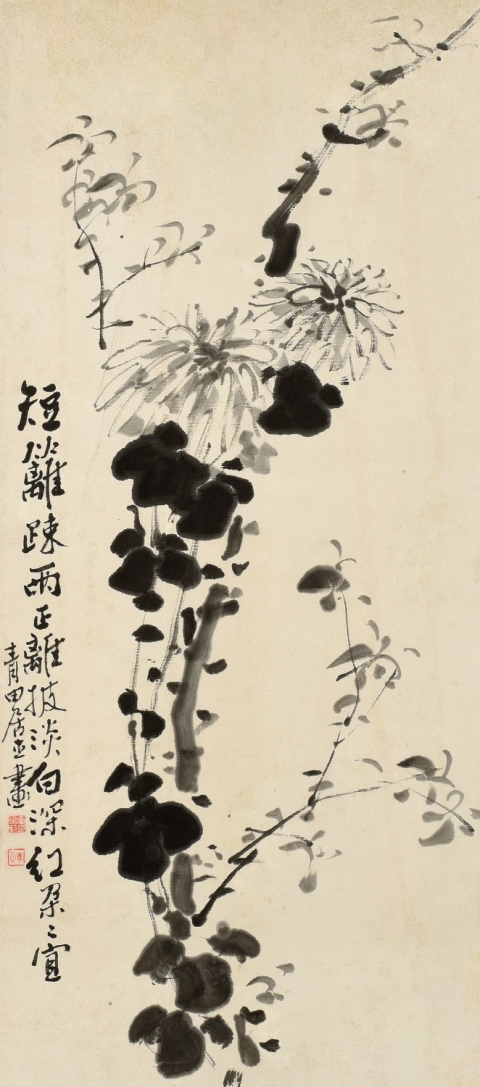 短籬疎雨正離披淡白深紅朶〻宜
青田居士畫